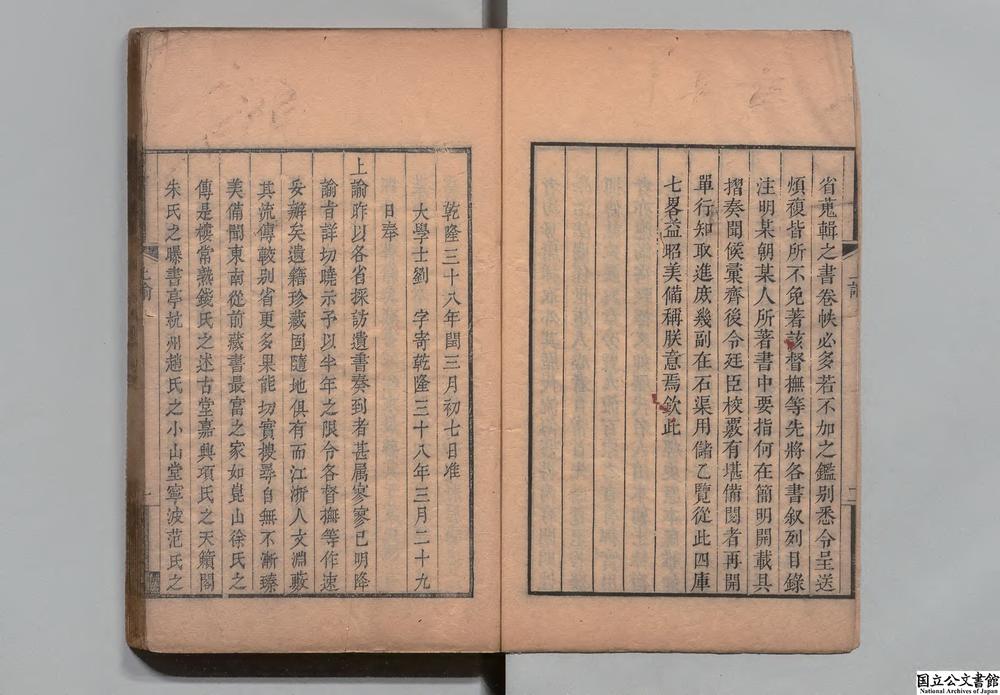 省蒐輯之書卷帙必多若不加之鑑别悉令呈送
煩複皆所不免著該督撫等先將各書叙列目錄
注明某朝某人所著書中要指何在簡明開載具
摺奏聞候彙齊後令廷臣校覈有堪備閱者再開
單行知取進庶幾副在石渠用儲乙覽從此四庫
七畧益昭美備稱朕意焉欽此
二
乾隆三十八年閏三月初七日准
大學士劉 字寄乾隆三十八年三月二十九
日奉
上諭昨以各省採訪遺書奏到者甚属寥寥已明降
諭旨詳切曉示予以半年之限令各督撫等作速
妥辦矣遺籍珍藏固隨地俱有而江浙人文淵藪
其流傳較别省更多果能切實搜尋自無不漸臻
美備聞東南從前藏書最富之家如崑山徐氏之
傳是樓常熟錢氏之述古堂嘉興項氏之天籟閣
朱氏之曝書亭杭州趙氏之小山堂寧波范氏之
上諭
国立公文書館
National Archives of Japan